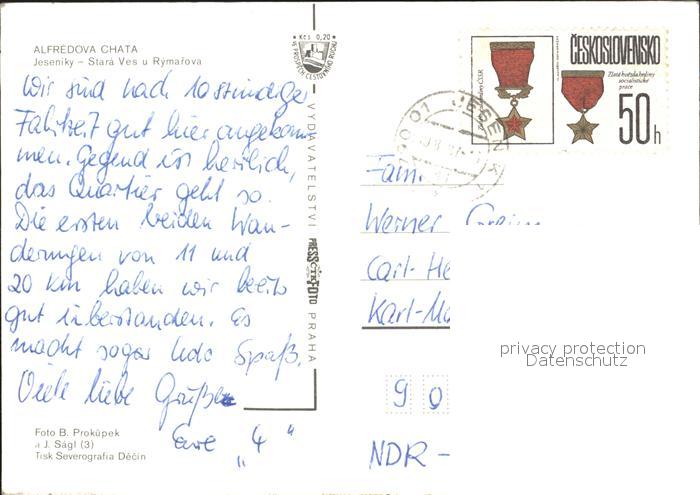 ALFRÉDOVA CHATA
Jeseníky – Stará Ves u Rýmařova
Wir sind nach 10 stündiger
Fahrzeit gut hier angekom
men. Gegend ist herrlich,
das Quartier geht so.
Die ersten beiden Wan-
derungen von 11 und
20 km haben wir bereits
gut überstanden. Es
macht sogar Udo Spaß.
Viele liebe Grüße
Eure „4“
Foto B. Prokůpek
a J. Ságl (3)
Tisk Severografia Děčín
Kčs 0,20
VE PROSPĚCH CESTOVNÍHO RUCHU
VYDAVATELSTVÍ
PRESSFOTO
PRAHA
ČESKOSLOVENSKO
Zlatá hvězda hrdiny
socialistické
práce
50 h
JESENÍK
Fam.
Werner
Carl-He
Karl-Ma
90
NDR –
privacy protection
Datenschutz